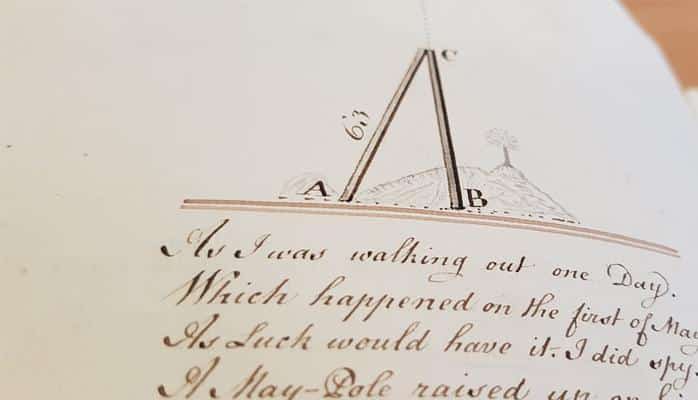 C
63
A
B
As I was walking out one Day.
Which happened on the first of May
As Luck would have it. I did spy.
A May-Pole raised up on